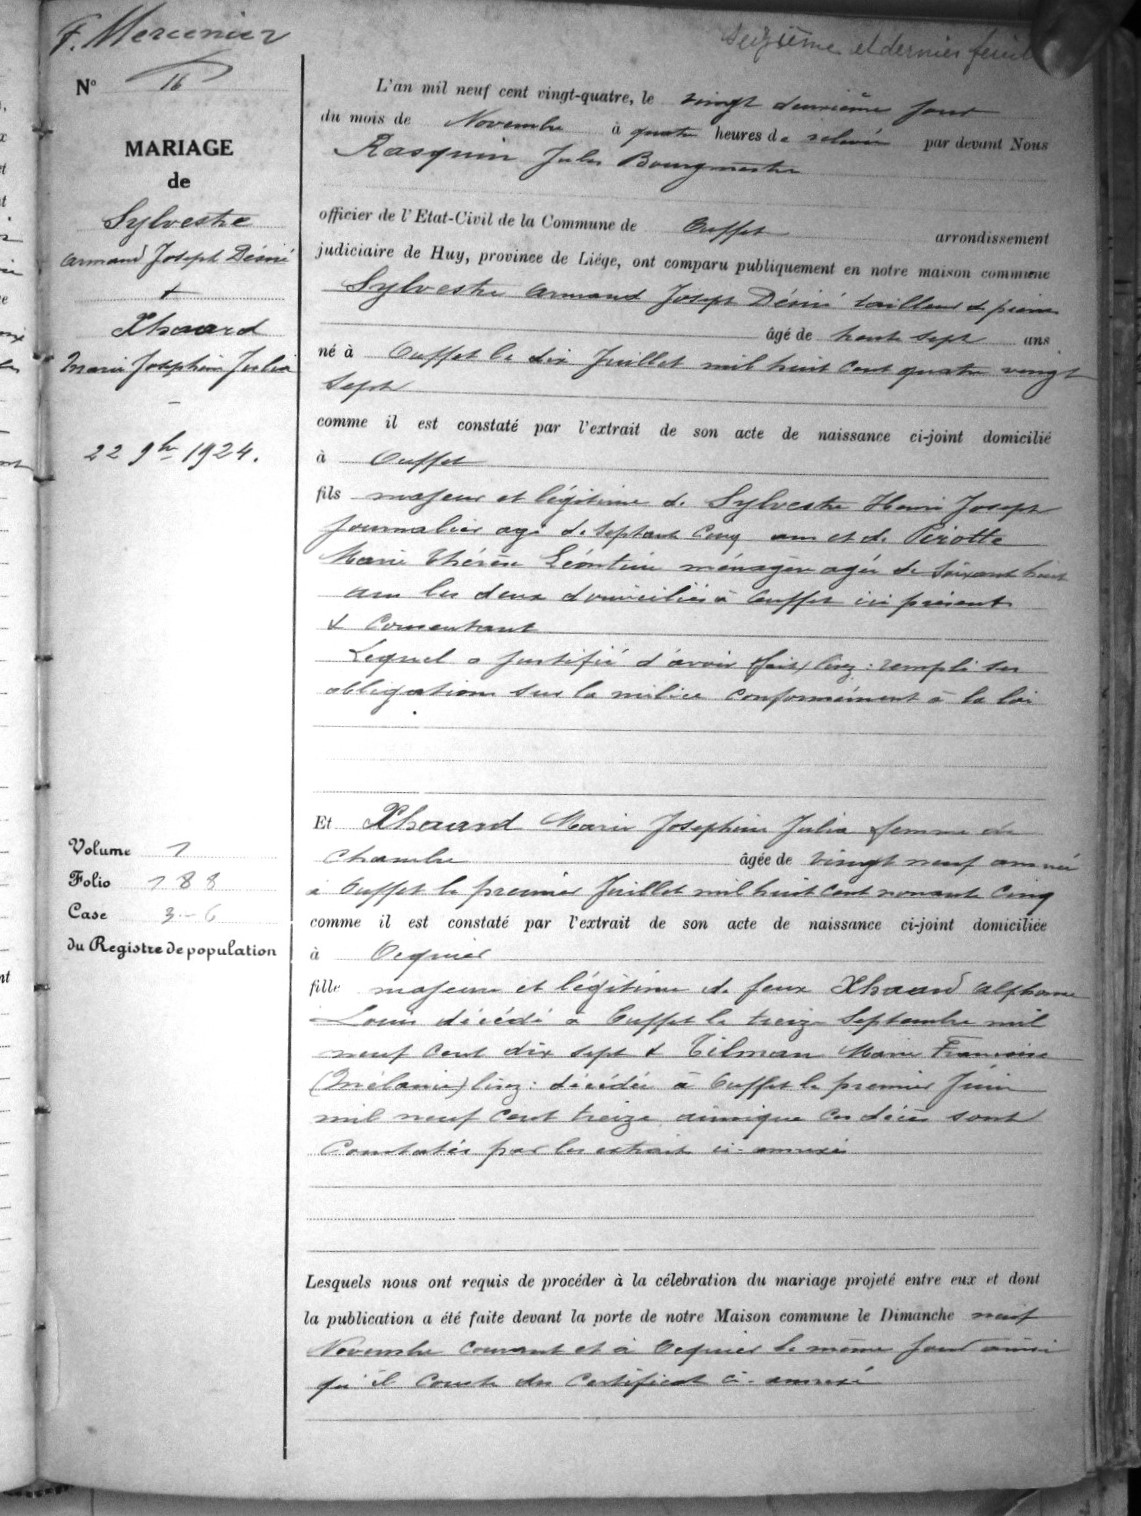 F. Mercenier
seizième et dernier feuil
N° 16
MARIAGE
de
Sylvestre
Armand Joseph Désiré
+
Xhaard
Marie Joséphine Julia
22 9br 1924.
Volume 1
Folio 188
Case 3-6
du Registre de population
L'an mil neuf cent vingt-quatre, le vingt deuxième jour
du mois de Novembre à quatre heures de relevée par devant Nous
Rasquin Jules Bourgmestre
officier de l'Etat-Civil de la Commune de Ouffet arrondissement
judiciaire de Huy, province de Liége, ont comparu publiquement en notre maison commune
Sylvestre Armand Joseph Désiré tailleur de pierres
âgé de trente sept ans
né à Ouffet le dix Juillet mil huit cent quatre vingt
sept
comme il est constaté par l'extrait de son acte de naissance ci-joint domicilié
à Ouffet
fils majeur et légitime de Sylvestre Henri Joseph
journalier agé de septante cinq ans et de Pirotte
Marie Thérèse Léontine ménagère agée de soixante huit
ans les deux domiciliés à Ouffet ici présents
& consentant
Lequel a justifié d'avoir (fait) lisez : rempli ses
obligations sur la milice conformément à la loi
Et Xhaard Marie Joséphine Julia femme de
chambre âgée de vingt neuf ans née
à Ouffet le premier Juillet mil huit cent nonante cinq
comme il est constaté par l'extrait de son acte de naissance ci-joint domiciliée
à Ocquier
fille majeure et légitime de feux Xhaard Alphonse
Louis décédé à Ouffet le treize Septembre mil
neuf cent dix sept & Tilman Marie Françoise
(Mélanie) lisez : décédée à Ouffet le premier Juin
mil neuf cent treize ainsi que ces décès sont
constatés par les extraits ci-annexés
Lesquels nous ont requis de procéder à la célebration du mariage projeté entre eux et dont
la publication a été faite devant la porte de notre Maison commune le Dimanche neuf
Novembre courant et à Ocquier le même jour ainsi
qu'il conste du certificat ci-annexé